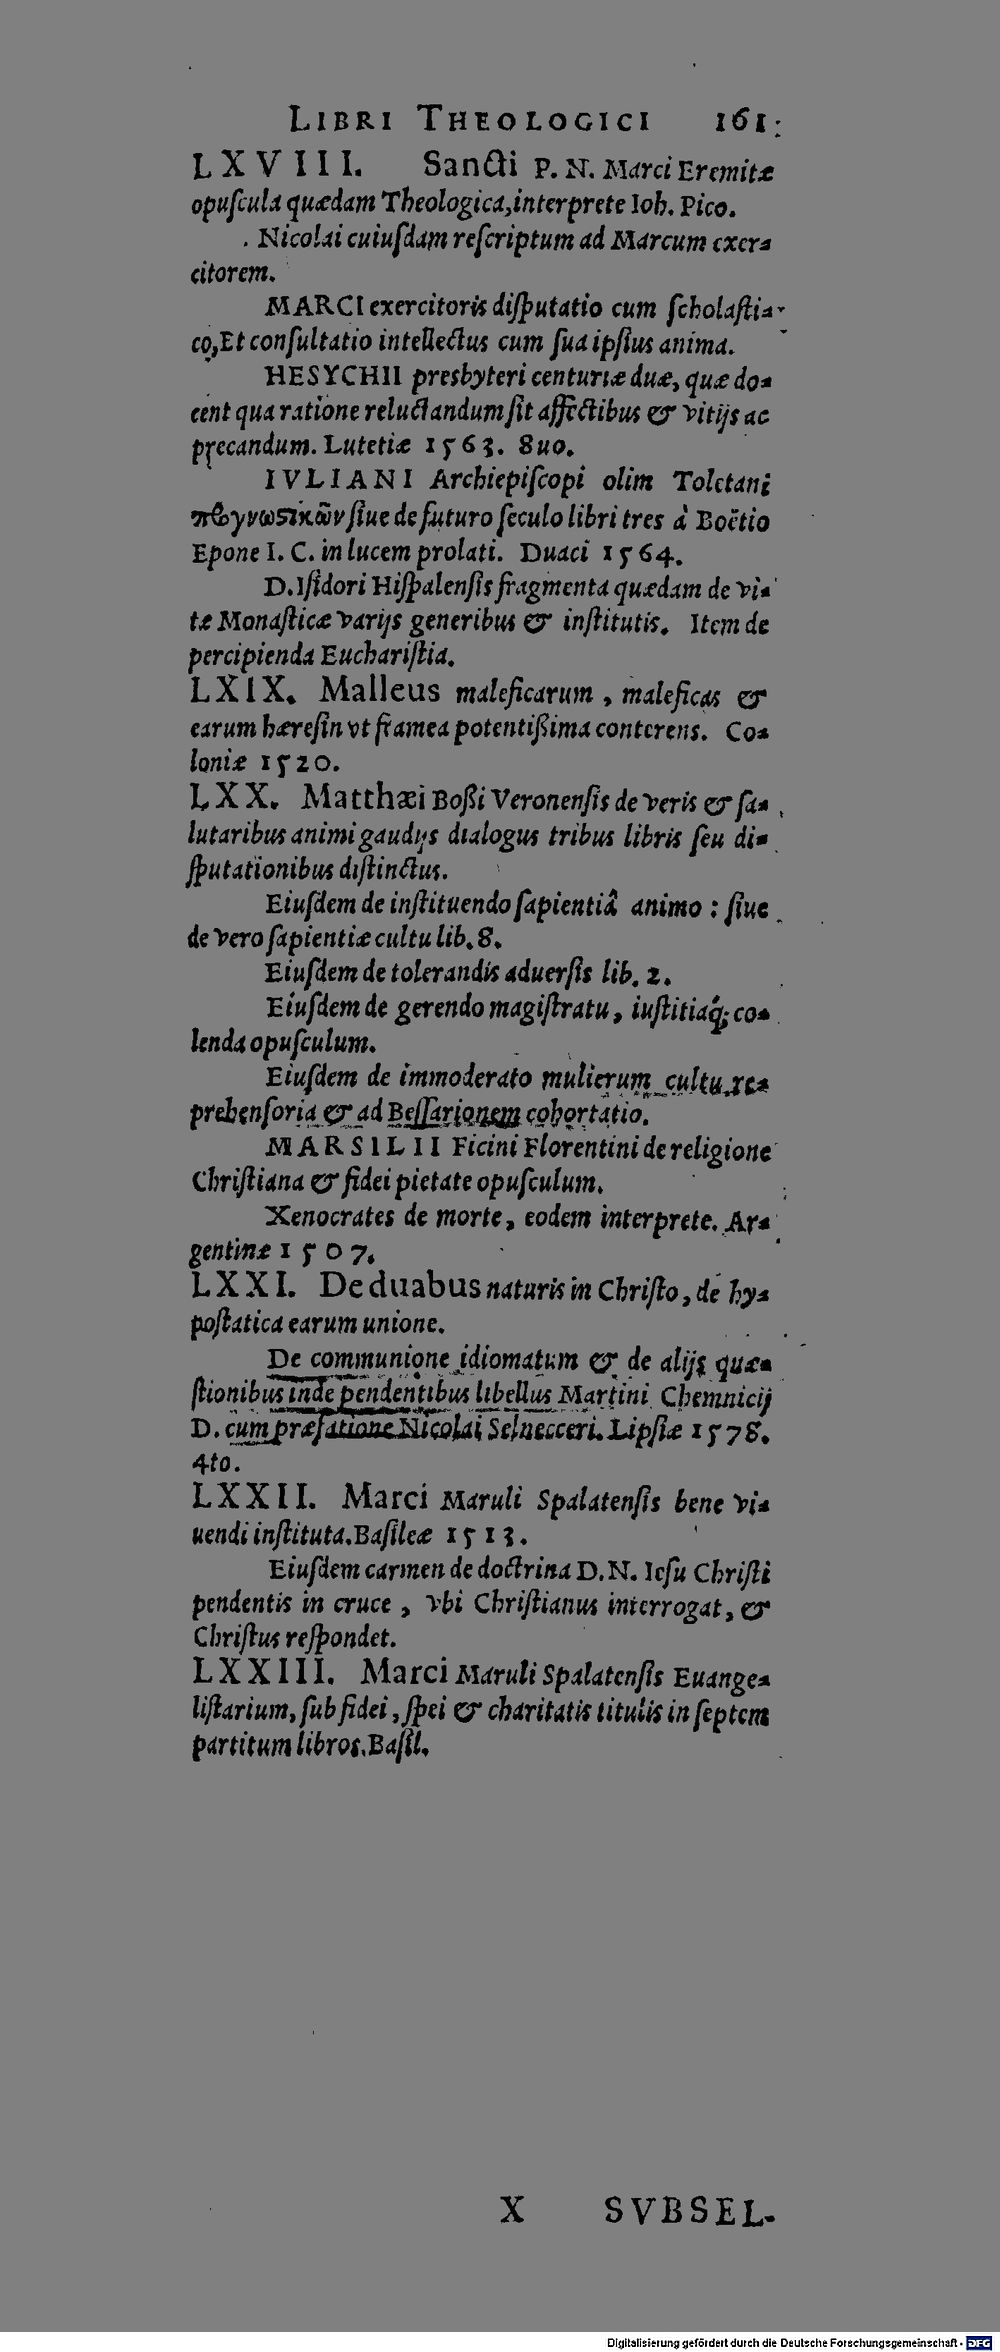 LIBRI THEOLOGICI 161
LXVIII. Sancti P. N. Marci Eremitæ
opuſcula quædam Theologica, interprete Ioh. Pico.
Nicolai cuiuſdam reſcriptum ad Marcum exer⸗
citorem.
MARCI exercitoris diſputatio cum ſcholaſti⸗
co, Et conſultatio intellectus cum ſua ipſius anima.
HESYCHII presbyteri centuriæ duæ, quæ do⸗
cent qua ratione reluctandum ſit affectibus & vitijs ac
precandum. Lutetiæ 1563. 8uo.
IVLIANI Archiepiſcopi olim Toletani
ϖρογνωϛικῶν ſiue de futuro ſeculo libri tres à Boëtio
Epone I. C. in lucem prolati. Duaci 1564.
D. Iſidori Hiſpalenſis fragmenta quædam de vi⸗
tæ Monaſticæ varijs generibus & inſtitutis. Item de
percipienda Euchariſtia.
LXIX. Malleus maleficarum, maleficas &
earum hæreſin vt framea potentißima conterens. Co⸗
loniæ 1520.
LXX. Matthæi Boßi Veronenſis de veris & ſa⸗
lutaribus animi gaudijs dialogus tribus libris ſeu di⸗
ſputationibus diſtinctus.
Eiuſdem de inſtituendo ſapientiâ animo: ſiue
de vero ſapientiæ cultu lib. 8.
Eiuſdem de tolerandis aduerſis lib. 2.
Eiuſdem de gerendo magiſtratu, iuſtitiaq́; co⸗
lenda opuſculum.
Eiuſdem de immoderato mulierum cultu re⸗
prehenſoria & ad Beſſarionem cohortatio.
MARSILII Ficini Florentini de religione
Chriſtiana & fidei pietate opuſculum.
Xenocrates de morte, eodem interprete. Ar⸗
gentinæ 1507.
LXXI. De duabus naturis in Chriſto, de hy⸗
poſtatica earum unione.
De communione idiomatum & de alijs quæ⸗
ſtionibus inde pendentibus libellus Martini Chemnicij
D. cum præfatione Nicolai Selnecceri. Lipſiæ 1578.
4to.
LXXII. Marci Maruli Spalatenſis bene vi⸗
uendi inſtituta. Baſileæ 1513.
Eiuſdem carmen de doctrina D. N. Ieſu Chriſti
pendentis in cruce, vbi Chriſtianus interrogat, &
Chriſtus reſpondet.
LXXIII. Marci Maruli Spalatenſis Euange⸗
liſtarium, ſub fidei, ſpei & charitatis titulis in ſeptem
partitum libros. Baſil.
X SVBSEL-
Digitalisierung gefördert durch die Deutsche Forschungsgemeinschaft - DFG